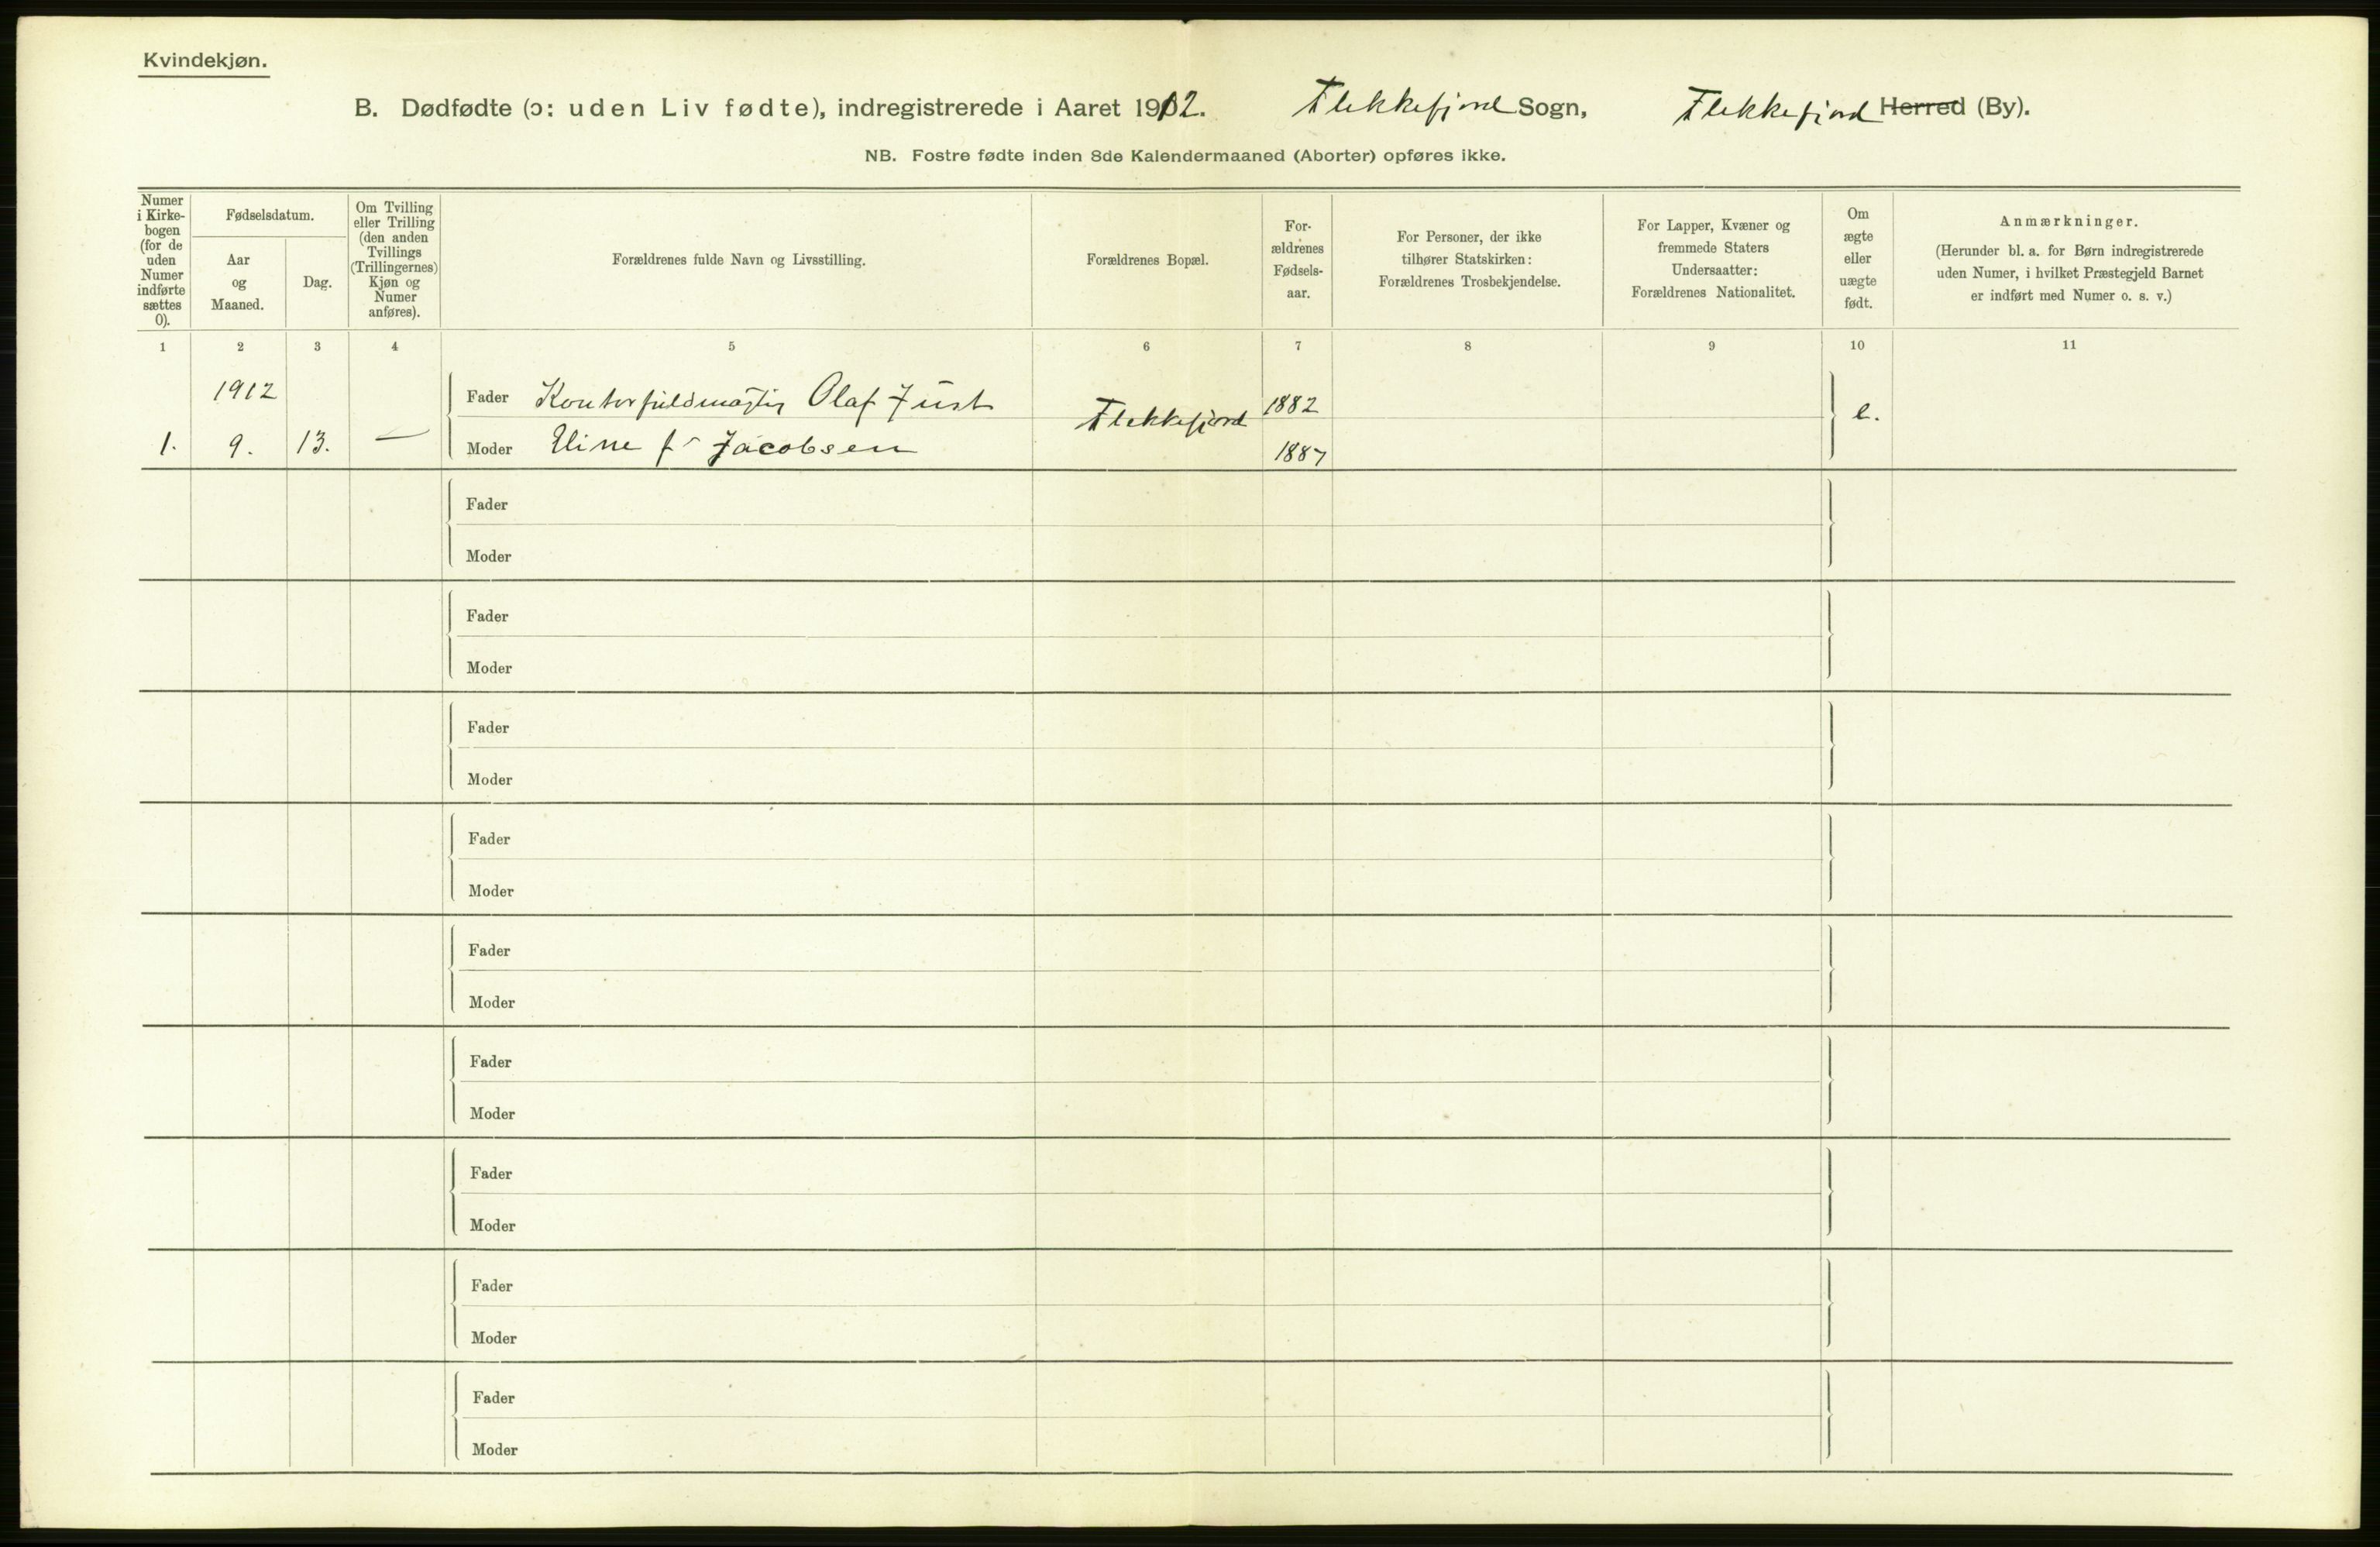 Kvindekjøn.
B. Dødfødte (ɔ: uden Liv fødte), indregistrerede i Aaret 1912. Flekkefjord Sogn, Flekkefjord Herred (By).
NB. Fostre fødte inden 8de Kalendermaaned (Aborter) opføres ikke.
Numer
i Kirke-
bogen
(for de
uden
Numer
indførte
sættes
0).
Fødselsdatum.
Aar
og
Maaned.
Dag.
Om Tvilling
eller Trilling
(den anden
Tvillings
(Trillingernes)
Kjøn og
Numer
anføres).
Forældrenes fulde Navn og Livsstilling.
Forældrenes Bopæl.
For-
ældrenes
Fødsels-
aar.
For Personer, der ikke
tilhører Statskirken:
Forældrenes Trosbekjendelse.
For Lapper, Kvæner og
fremmede Staters
Undersaatter:
Forældrenes Nationalitet.
Om
ægte
eller
uægte
født.
Anmærkninger.
(Herunder bl. a. for Børn indregistrerede
uden Numer, i hvilket Præstegjeld Barnet
er indført med Numer o. s. v.)
1 2 3 4 5 6 7 8 9 10 11
1912 Fader Kontorfuldmægtig Olaf Just Flekkefjord 1882 e.
1. 9. 13. — Moder Eline f. Jacobsen 1887
Fader
Moder
Fader
Moder
Fader
Moder
Fader
Moder
Fader
Moder
Fader
Moder
Fader
Moder
Fader
Moder
Fader
Moder